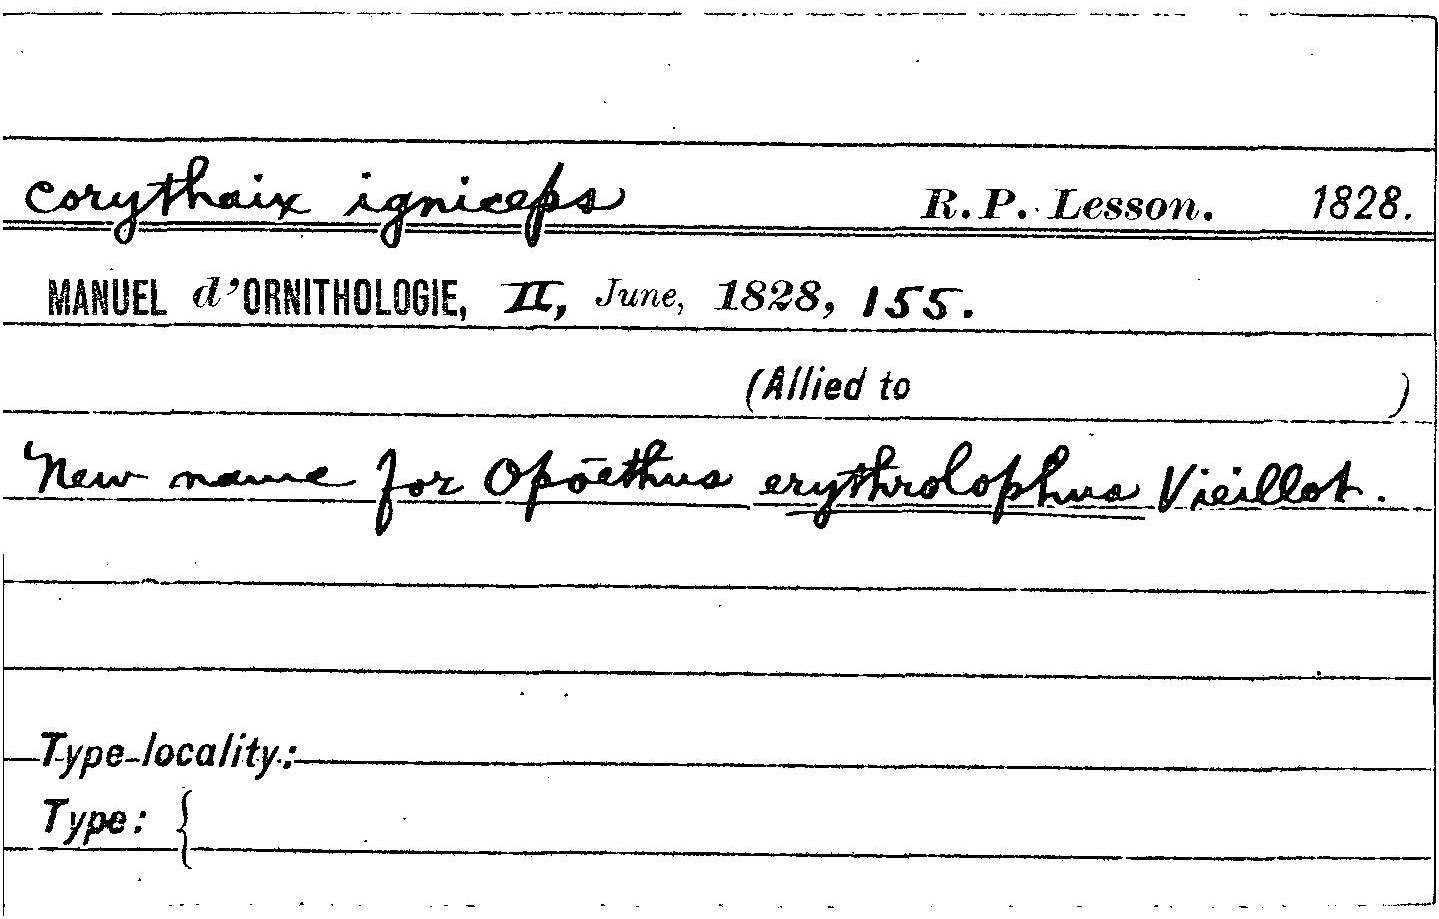 Corythaix igniceps R.P. Lesson. 1828.
MANUEL d'ORNITHOLOGIE, II, June, 1828, 155.
(Allied to )
New name for Opōethus erythrolophus Vieillot.
Type-locality:
Type: {